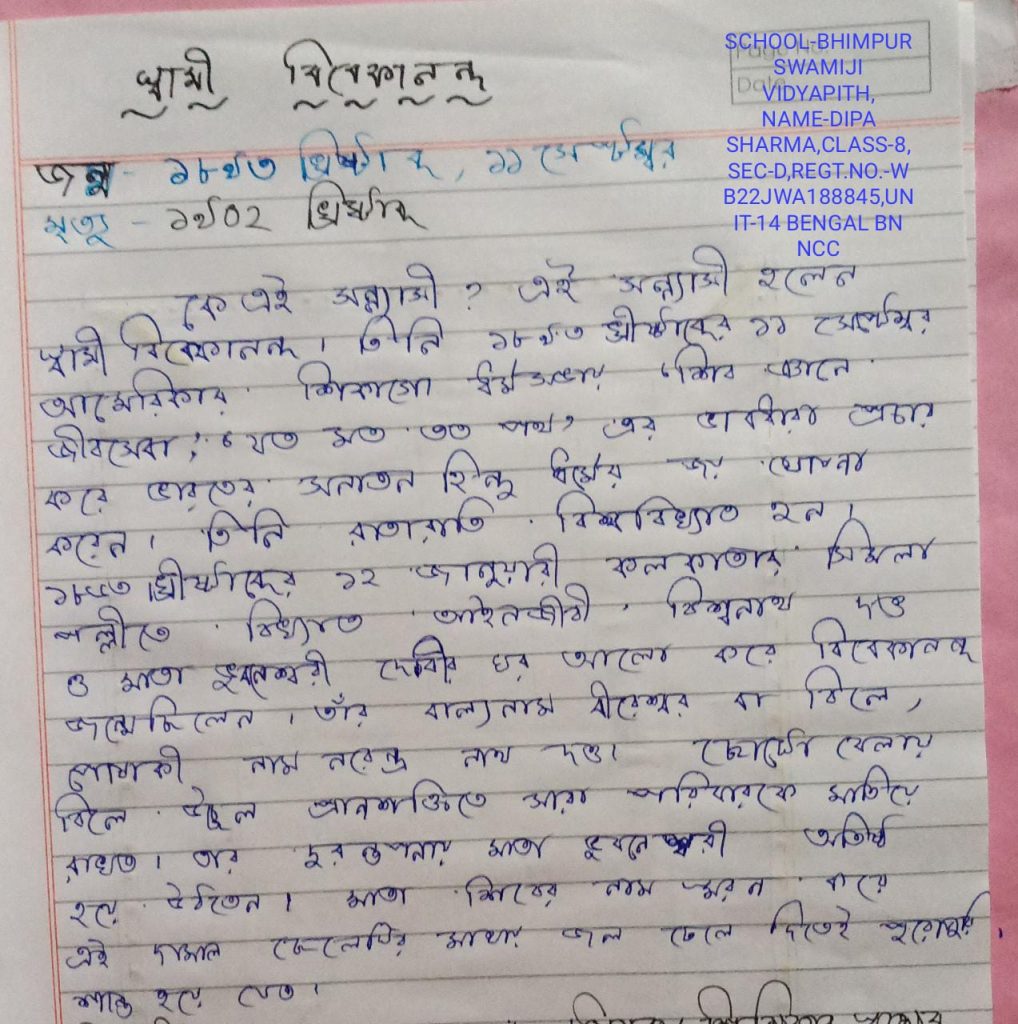 স্বামী বিবেকানন্দ
Page No.
Date
SCHOOL-BHIMPUR
SWAMIJI
VIDYAPITH,
NAME-DIPA
SHARMA,CLASS-8,
SEC-D,REGT.NO.-W
B22JWA188845,UN
IT-14 BENGAL BN
NCC
জন্ম - ১৮৯৩ খ্রিষ্টাব্দ, ১১ সেপ্টেম্বর
মৃত্যু - ১৯০২ খ্রিষ্টাব্দ
কে এই সন্ন্যাসী ? এই সন্ন্যাসী হলেন
স্বামী বিবেকানন্দ। তিনি ১৮৯৩ খ্রীষ্টাব্দের ১১ সেপ্টেম্বর
আমেরিকার শিকাগো ধর্মসভায় 'শিব জ্ঞানে
জীবসেবা', 'যত মত তত পথ' এর ভাবধারা প্রচার
করে ভারতের সনাতন হিন্দু ধর্মের জয় ঘোষনা
করেন। তিনি রাতারাতি বিশ্ববিখ্যাত হন।
১৮৬৩ খ্রীষ্টাব্দের ১২ জানুয়ারী কলকাতার সিমলা
পল্লীতে বিখ্যাত আইনজীবী বিশ্বনাথ দত্ত
ও মাতা ভুবনেশ্বরী দেবীর ঘর আলো করে বিবেকানন্দ
জন্মেছিলেন। তাঁর বাল্যনাম বীরেশ্বর বা বিলে,
পোশাকী নাম নরেন্দ্র নাথ দত্ত। ছোটো বেলায়
বিলে প্রানশক্তিতে সারা পরিবারকে মাতিয়ে
রাখত। তার দুরন্তপনায় মাতা ভুবনেশ্বরী অতিষ্ঠ
হয়ে উঠতেন। মাতা শিবের নাম স্মরন করে
এই দামাল ছেলেটির মাথায় জল ঢেলে দিতেই পুরোপুরি
শান্ত হয়ে যেত।